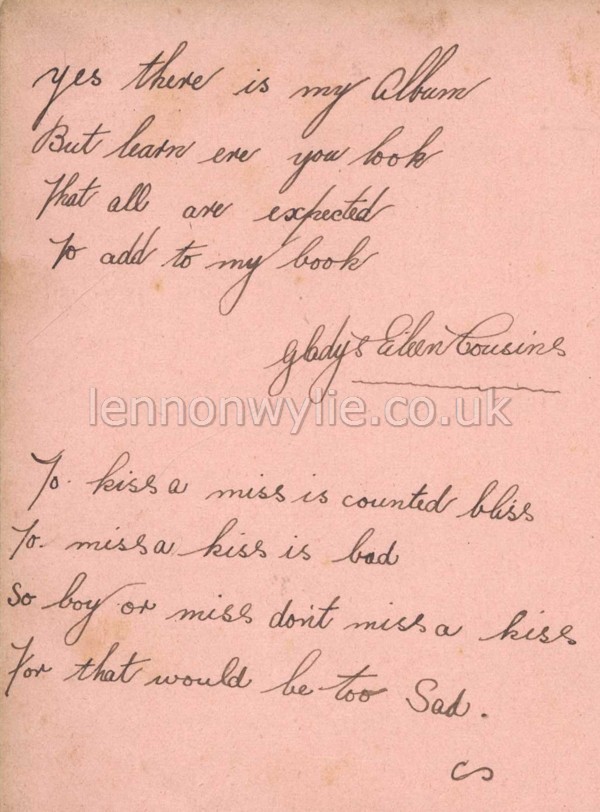 yes there is my Album
But learn ere you look
That all are expected
To add to my book
Gladys Eileen Cousins
lennonwylie.co.uk
To kiss a miss is counted bliss
To miss a kiss is bad
So boy or miss don't miss a kiss
For that would be too Sad.